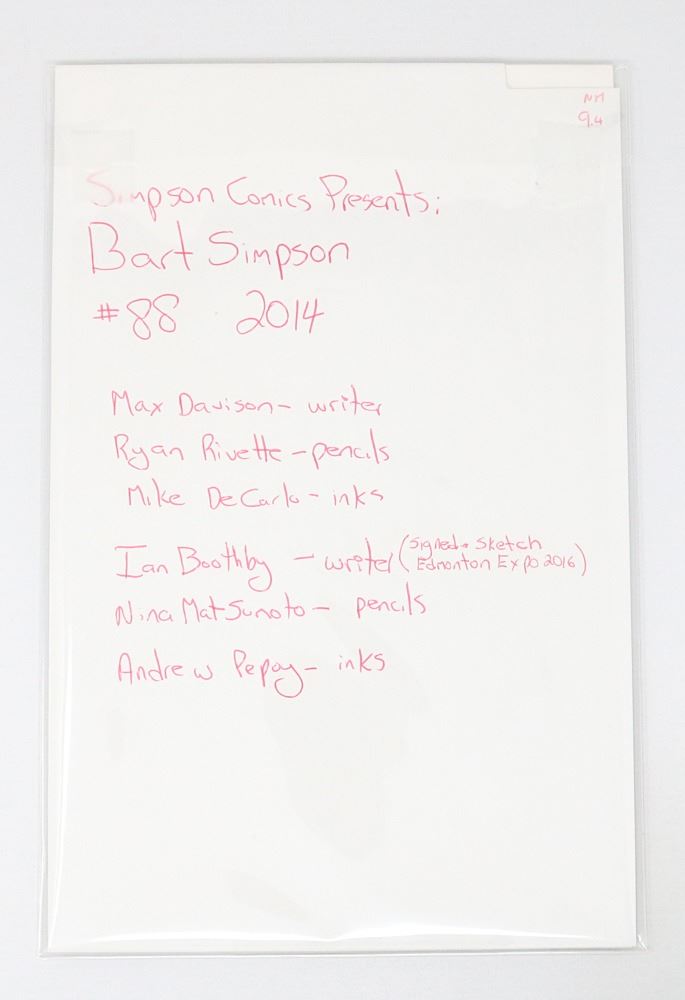 NM
9.4
Simpson Comics Presents:
Bart Simpson
#88 2014
Max Davison - writer
Ryan Rivette - pencils
Mike DeCarlo - inks
Ian Boothby - writer (Signed + Sketch
Edmonton Expo 2016)
Nina Matsumoto - pencils
Andrew Pepoy - inks